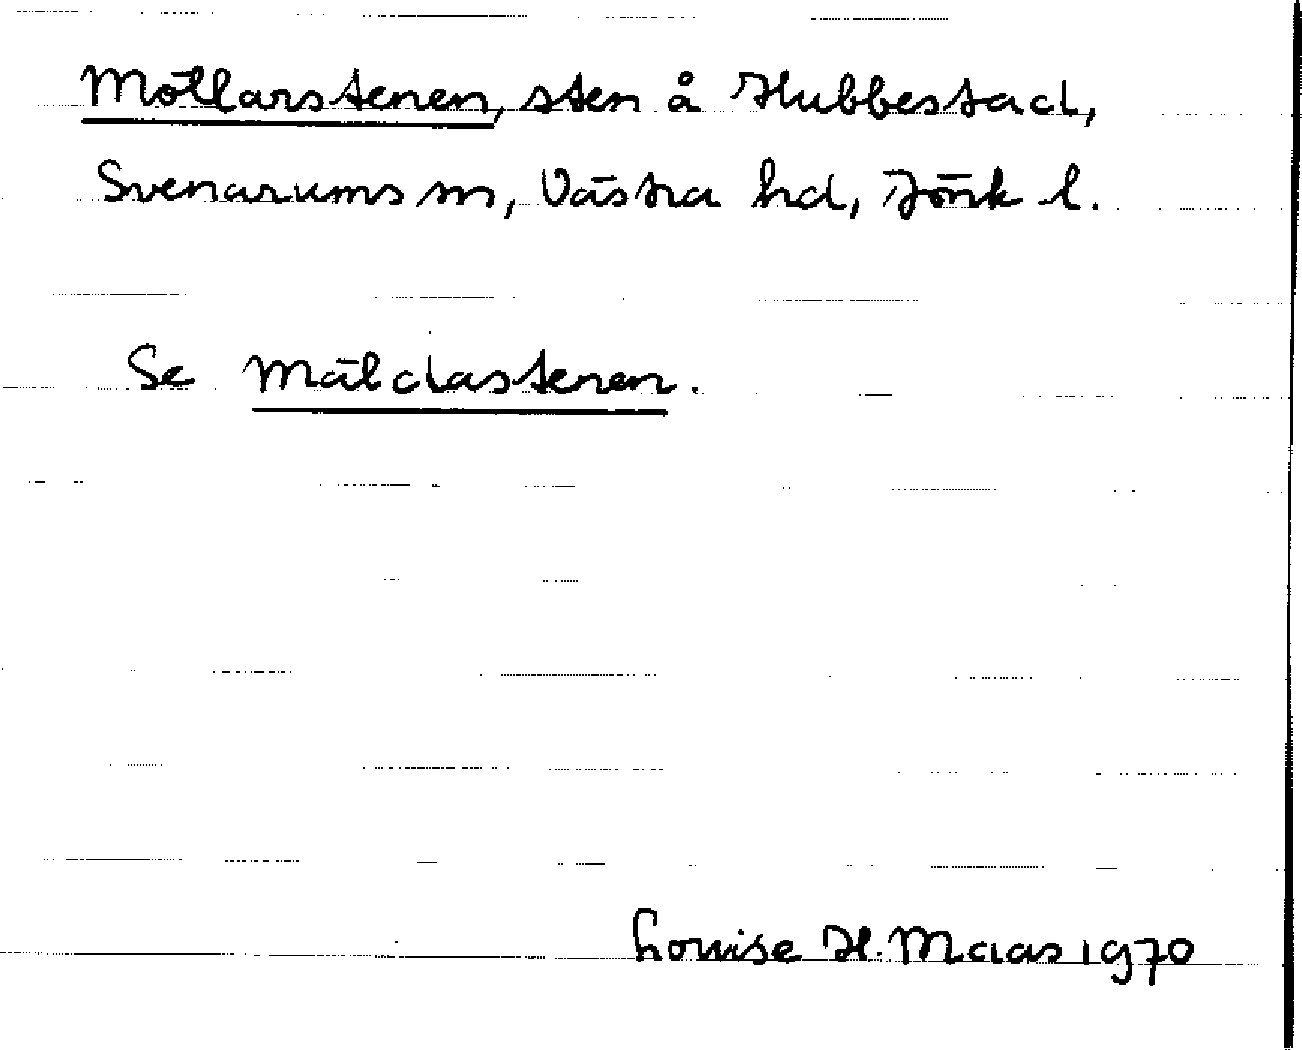 Möllarstenen, sten å Hubbestad,
Svenarums sn, Västra hd, Jönk l.
Se Mäldastenen.
Louise H. Maas 1970